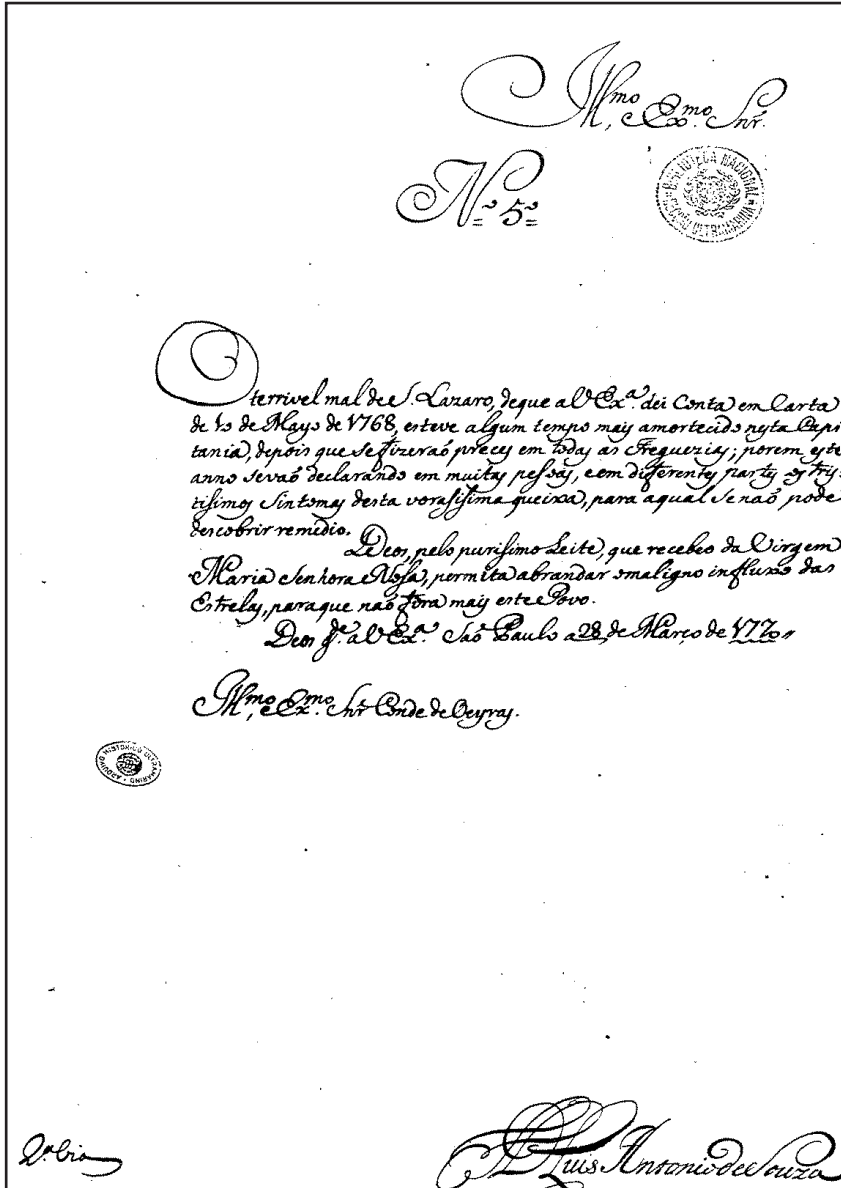 Ill.mo, e Ex.mo Snr.
BIBLIOTECA NACIONAL
SECÇÃO ULTRAMARINA
N.º 5º
O terrivel mal de S. Lazaro, deque a V Ex.ª dei Conta em Carta
de 10 de Mayo de 1768, esteve algum tempo mais amortecido nesta Capi
tania, depois que se fizeraõ preces em todas as Freguezias; porem este
anno sevaõ declarando em muitas pessoas, eem differentes partes os tris=
tisimos sintomas desta vorasisima queixa, para aqual se naõ pode
descobrir remedio.
Deos, pelo purisimo Leite, que recebeo da Virgem
Maria Senhora Nossa, permita abrandar omaligno influxo das
Estrelas, paraque naõ fira mais este Povo.
Deos g.de a V Ex.ª Saõ Paulo a 28, de Março de 1770,,
Ill.mo, e Ex.mo Snr Conde de Oeyras.
ARQUIVO HISTÓRICO ULTRAMARINO
2.ª via
D. Luis Antonio de Souza